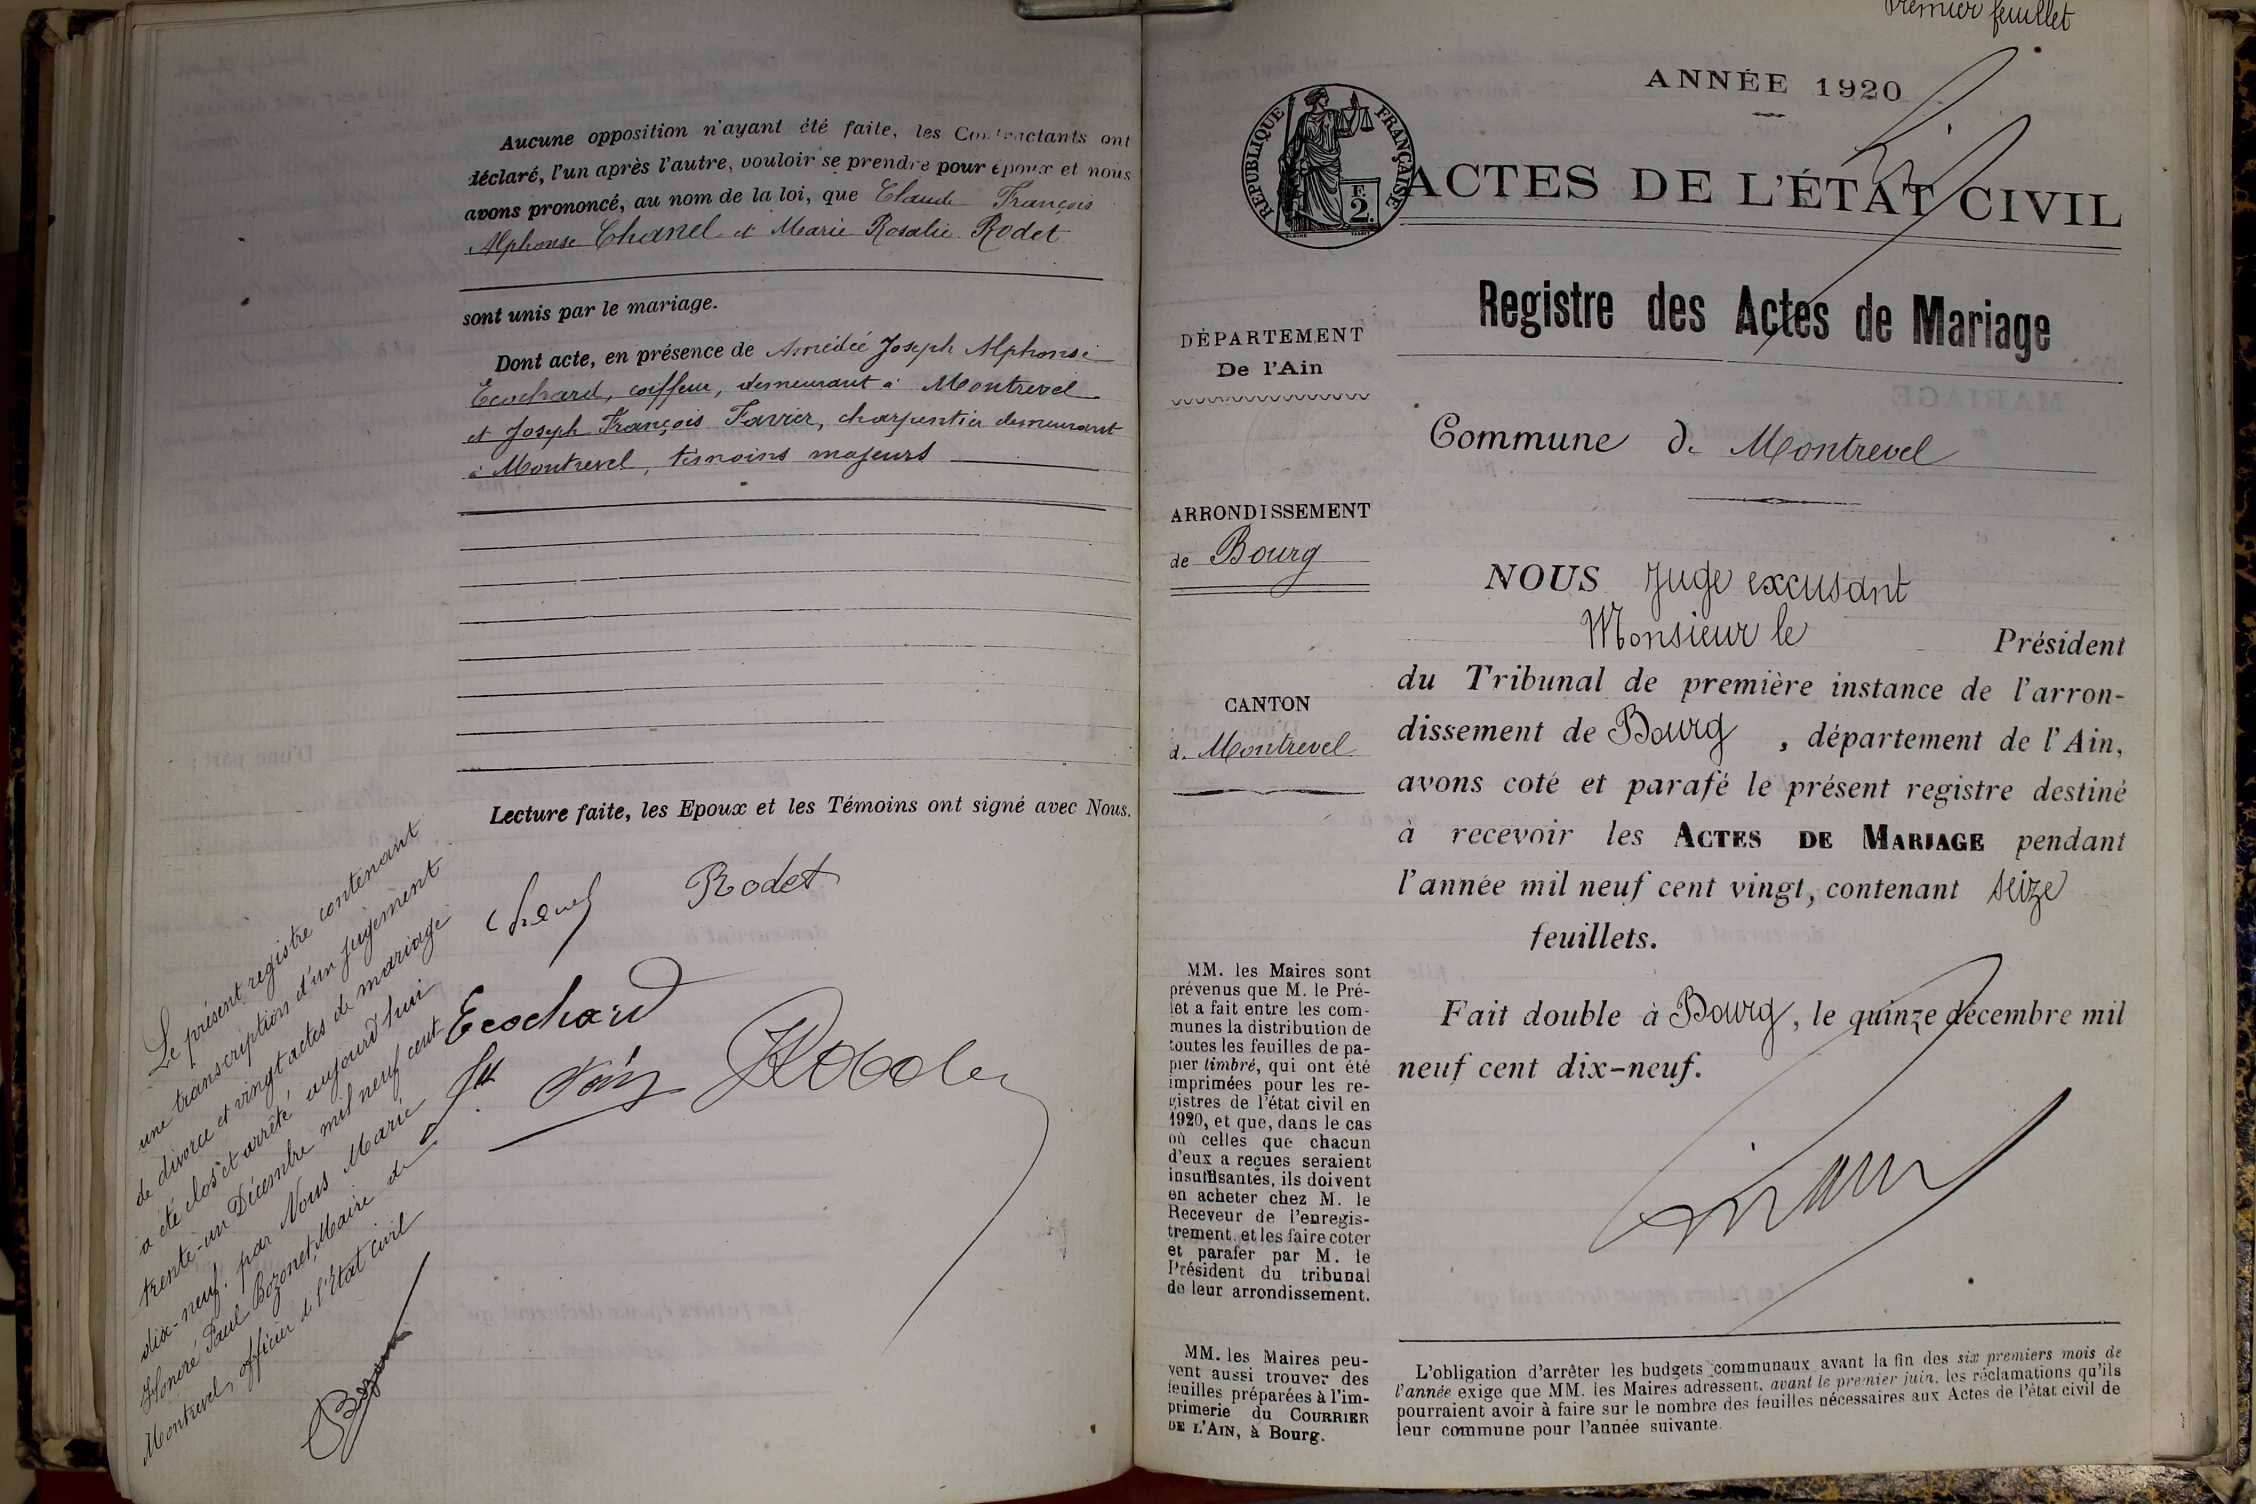 Aucune opposition n'ayant été faite, les Contractants ont
déclaré, l'un après l'autre, vouloir se prendre pour époux et nous
avons prononcé, au nom de la loi, que Claude François
Alphonse Chanel et Marie Rosalie Rodet
sont unis par le mariage.
Dont acte, en présence de Amédée Joseph Alphonse
Ecochard, coiffeur, demeurant à Montrevel
et Joseph François Favier, charpentier demeurant
à Montrevel, témoins majeurs
Lecture faite, les Epoux et les Témoins ont signé avec Nous.
Chanel Rodet
Ecochard
Le présent registre contenant
une transcription d'un jugement
de divorce et vingt actes de mariage
a été clos et arrêté aujourd'hui
trente-un Décembre mil neuf cent
dix-neuf. par Nous Marie
Honoré Paul Bozonet, Maire de
Montrevel, officier de l'Etat civil
Premier feuillet
ANNÉE 1920
RÉPUBLIQUE FRANÇAISE
F.
2.
ACTES DE L'ÉTAT CIVIL
Registre des Actes de Mariage
DÉPARTEMENT
De l'Ain
Commune de Montrevel
ARRONDISSEMENT
de Bourg
CANTON
de Montrevel
NOUS Juge excusant
Monsieur le Président
du Tribunal de première instance de l'arron-
dissement de Bourg, département de l'Ain,
avons coté et parafé le présent registre destiné
à recevoir les ACTES DE MARIAGE pendant
l'année mil neuf cent vingt, contenant seize
feuillets.
Fait double à Bourg, le quinze décembre mil
neuf cent dix-neuf.
MM. les Maires sont
prévenus que M. le Pré-
fet a fait entre les com-
munes la distribution de
toutes les feuilles de pa-
pier timbré, qui ont été
imprimées pour les re-
gistres de l'état civil en
1920, et que, dans le cas
où celles que chacun
d'eux a reçues seraient
insuffisantes, ils doivent
en acheter chez M. le
Receveur de l'enregis-
trement, et les faire coter
et parafer par M. le
Président du tribunal
de leur arrondissement.
MM. les Maires peu-
vent aussi trouver des
feuilles préparées à l'im-
primerie du COURRIER
DE L'AIN, à Bourg.
L'obligation d'arrêter les budgets communaux avant la fin des six premiers mois de
l'année exige que MM. les Maires adressent, avant le premier juin, les réclamations qu'ils
pourraient avoir à faire sur le nombre des feuilles nécessaires aux Actes de l'état civil de
leur commune pour l'année suivante.